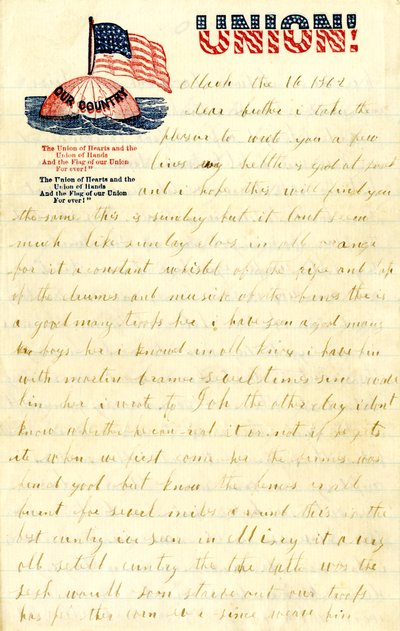 UNION!
OUR COUNTRY
The Union of Hearts and the
Union of Hands
And the Flag of our Union
For ever!"
The Union of Hearts and the
Union of Hands
And the Flag of our Union
For ever!"
March the 16 1862
Dear brother i take the
plesur to writ you a few
lines my hellth is good at
and i hope this will find you
the same this is sunday but it dont seem
much like sunday dos in old orange
for it a constant whisel of the fife and tap
of the drumes and musik of the there is
a good many troops her i have seen a good many
boys her i knowed in old i have bin
with martin severl times since
bin her i wrote to the other day i dont
know whether he can red it or not if he gets
it when we first come her the was
good but know the fences is all
burnt for severl miles around this is the
best cuntry ive seen in it a very
old setteld cuntry the
sesh would soon starve out our troofs
has the corn since weave bin